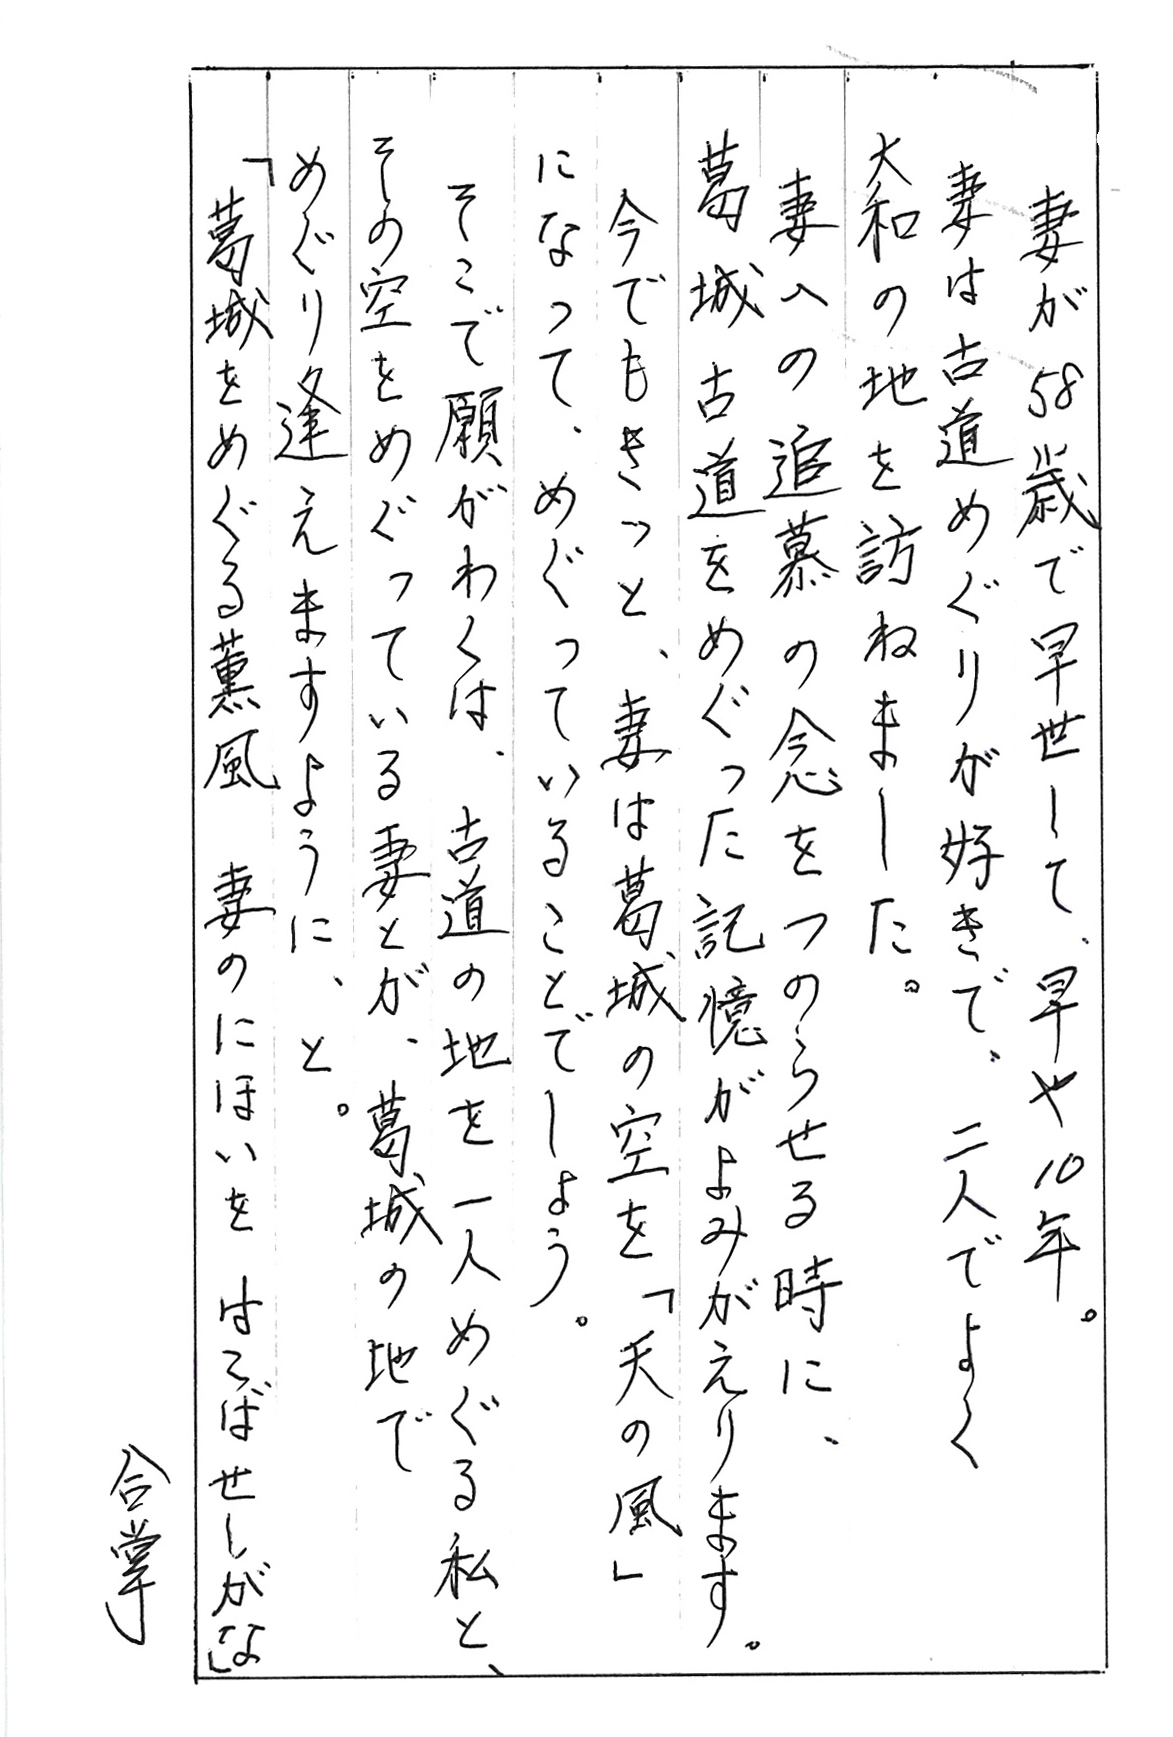 妻が58歳で早世して、早や10年。
妻は古道めぐりが好きで、二人でよく
大和の地を訪ねました。
妻への追慕の念をつのらせる時に、
葛城古道をめぐった記憶がよみがえります。
今でもきっと、妻は葛城の空を「天の風」
になって、めぐっていることでしょう。
そこで願がわくは、古道の地を一人めぐる私と、
その空をめぐっている妻とが、葛城の地で
めぐり逢えますように、と。
「葛城をめぐる薫風 妻のにほいを はこばせしがな」
合掌